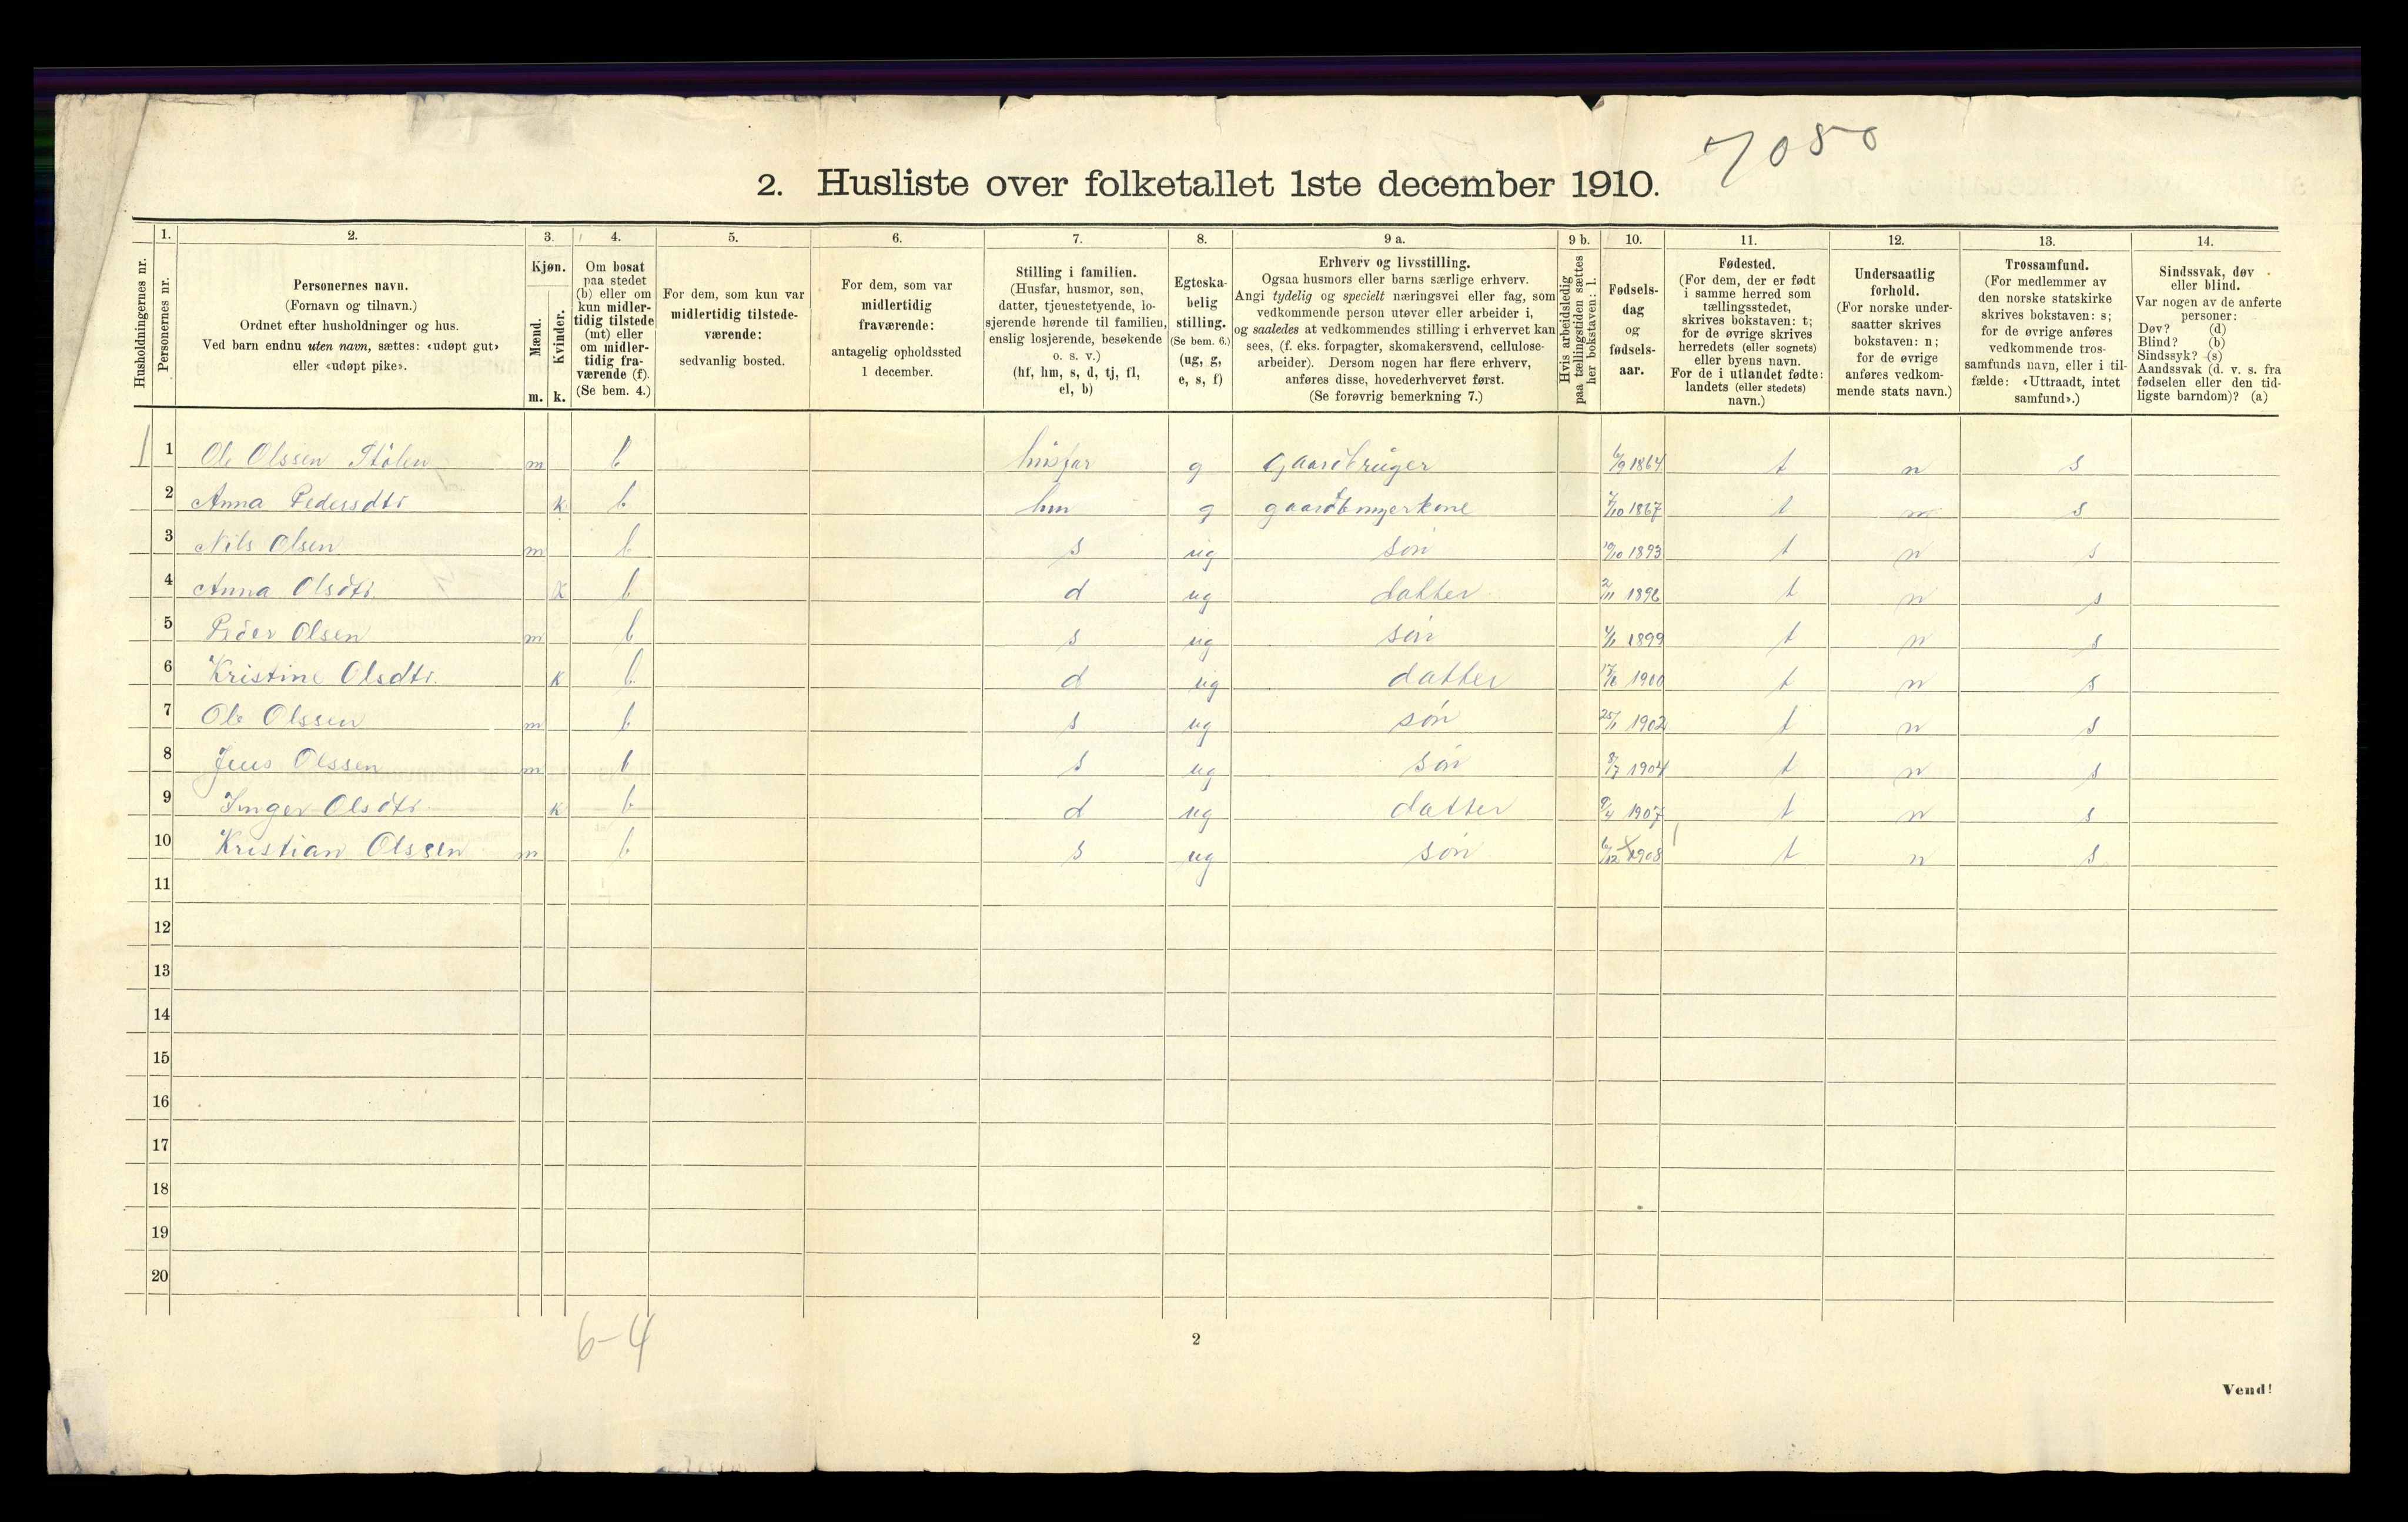 7080
2. Husliste over folketallet 1ste december 1910.
Husholdningernes nr.
1.
Personernes nr.
2.
Personernes navn.
(Fornavn og tilnavn.)
Ordnet efter husholdninger og hus.
Ved barn endnu uten navn, sættes: «udøpt gut»
eller «udøpt pike».
3.
Kjøn.
Mænd.
Kvinder.
m. k.
4.
Om bosat
paa stedet
(b) eller om
kun midler-
tidig tilstede
(mt) eller
om midler-
tidig fra-
værende (f).
(Se bem. 4.)
5.
For dem, som kun var
midlertidig tilstede-
værende:
sedvanlig bosted.
6.
For dem, som var
midlertidig
fraværende:
antagelig opholdssted
1 december.
7.
Stilling i familien.
(Husfar, husmor, søn,
datter, tjenestetyende, lo-
sjerende hørende til familien,
enslig losjerende, besøkende
o. s. v.)
(hf, hm, s, d, tj, fl,
el, b)
8.
Egteska-
belig
stilling.
(Se bem. 6.)
(ug, g,
e, s, f)
9 a.
Erhverv og livsstilling.
Ogsaa husmors eller barns særlige erhverv.
Angi tydelig og specielt næringsvei eller fag, som
vedkommende person utøver eller arbeider i,
og saaledes at vedkommendes stilling i erhvervet kan
sees, (f. eks. forpagter, skomakersvend, cellulose-
arbeider). Dersom nogen har flere erhverv,
anføres disse, hovederhvervet først.
(Se forøvrig bemerkning 7.)
9 b.
Hvis arbeidsledig
paa tællingstiden sættes
her bokstaven: l.
10.
Fødsels-
dag
og
fødsels-
aar.
11.
Fødested.
(For dem, der er født
i samme herred som
tællingsstedet,
skrives bokstaven: t;
for de øvrige skrives
herredets (eller sognets)
eller byens navn.
For de i utlandet fødte:
landets (eller stedets)
navn.)
12.
Undersaatlig
forhold.
(For norske under-
saatter skrives
bokstaven: n;
for de øvrige
anføres vedkom-
mende stats navn.)
13.
Trossamfund.
(For medlemmer av
den norske statskirke
skrives bokstaven: s;
for de øvrige anføres
vedkommende tros-
samfunds navn, eller i til-
fælde: «Uttraadt, intet
samfund».)
14.
Sindssvak, døv
eller blind.
Var nogen av de anførte
personer:
Døv? (d)
Blind? (b)
Sindssyk? (s)
Aandssvak (d. v. s. fra
fødselen eller den tid-
ligste barndom)? (a)
1 1 Ole Olssen Stølen m b husfar g gaardbruger 6/9 1864 t n s
2 Anna Pedersdtr k b hm g 7/10 1867 t n s
3 Nils Olsen m b s ug søn 10/10 1893 t n s
4 Anna Olsdtr. k b d ug datter 2/11 1896 t n s
5 Peder Olsen m b s ug søn 1899 t n s
6 Kristine Olsdtr. k b d ug datter 17/6 1900 t n s
7 Ole Olssen m b s ug søn 25/1 1902 t n s
8 Jens Olssen m b s ug søn 8/7 1904 t n s
9 Inger Olsdtr k b d ug datter 9/4 1907 t n s
10 Kristian Olssen m b s ug søn 6/12 1908 t n s
11
12
13
14
15
16
17
18
19
20
6-4
2
Vend!